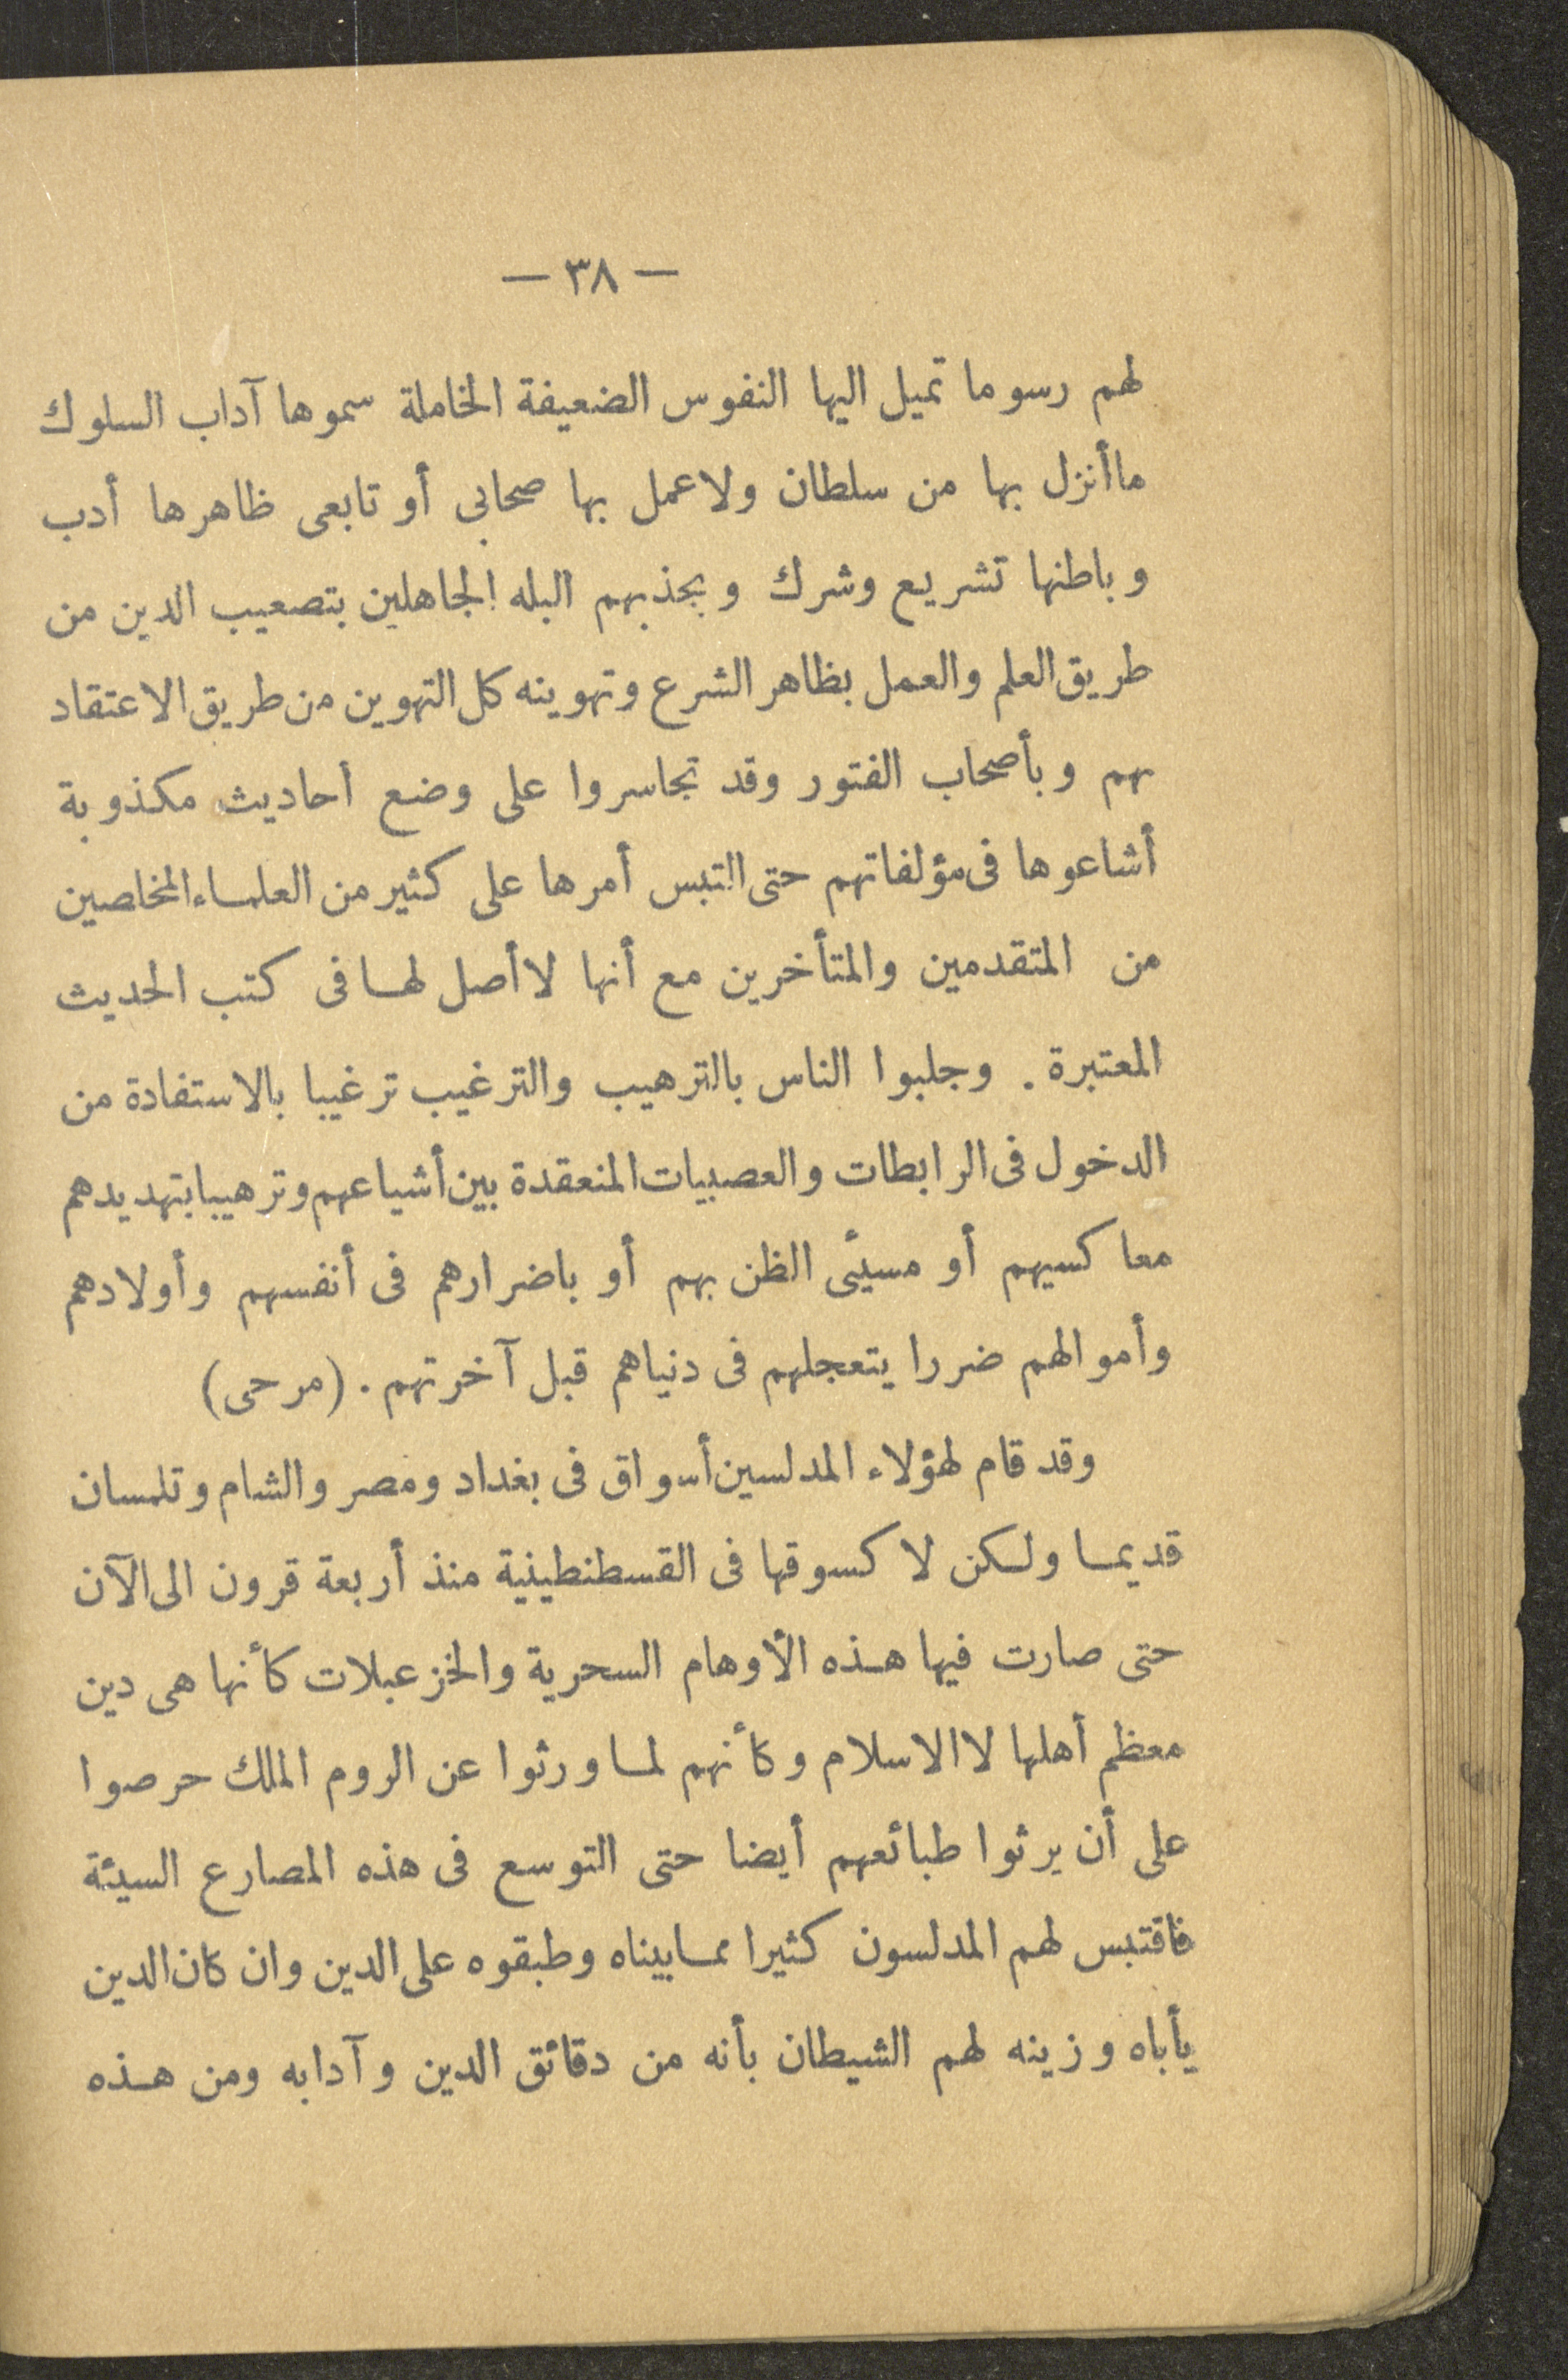 — ٣٨ —
لهم رسوما تميل اليها النفوس الضعيفة الخاملة سموها آداب السلوك
ماأنزل بها من سلطان ولاعمل بها صحابي أو تابعى ظاهرها أدب
وباطنها تشريع وشرك وبجذبهم البله الجاهلين بتصعيب الدين من
طريق العلم والعمل بظاهر الشرع وتهوينه كل التهوين من طريق الاعتقاد
بهم وبأصحاب الفتور وقد تجاسروا على وضع أحاديث مكذوبة
أشاعوها فى مؤلفاتهم حتى التبس أمرها على كثير من العلماء المخلصين
من المتقدمين والمتأخرين مع أنها لا أصل لها فى كتب الحديث
المعتبرة . وجلبوا الناس بالترهيب والترغيب ترغيبا بالاستفادة من
الدخول فى الرابطات والعصبيات المنعقدة بين أشياعهم وترهيبا بتهديدهم
معاكسيهم أو مسيئى الظن بهم أو باضرارهم فى أنفسهم وأولادهم
وأموالهم ضررا يتعجلهم فى دنياهم قبل آخرتهم . (مرحى)
وقد قام لهؤلاء المدلسين أسواق فى بغداد ومصر والشام وتلمسان
قديما ولكن لا كسوقها فى القسطنطينية منذ أربعة قرون الى الآن
حتى صارت فيها هذه الأوهام السحرية والخزعبلات كأنها هى دين
معظم أهلها لا الاسلام وكأنهم لما ورثوا عن الروم الملك حرصوا
على أن يرثوا طبائعهم أيضا حتى التوسع فى هذه المصارع السيئة
فاقتبس لهم المدلسون كثيرا مما بيناه وطبقوه على الدين وان كان الدين
يأباه وزينه لهم الشيطان بأنه من دقائق الدين وآدابه ومن هذه